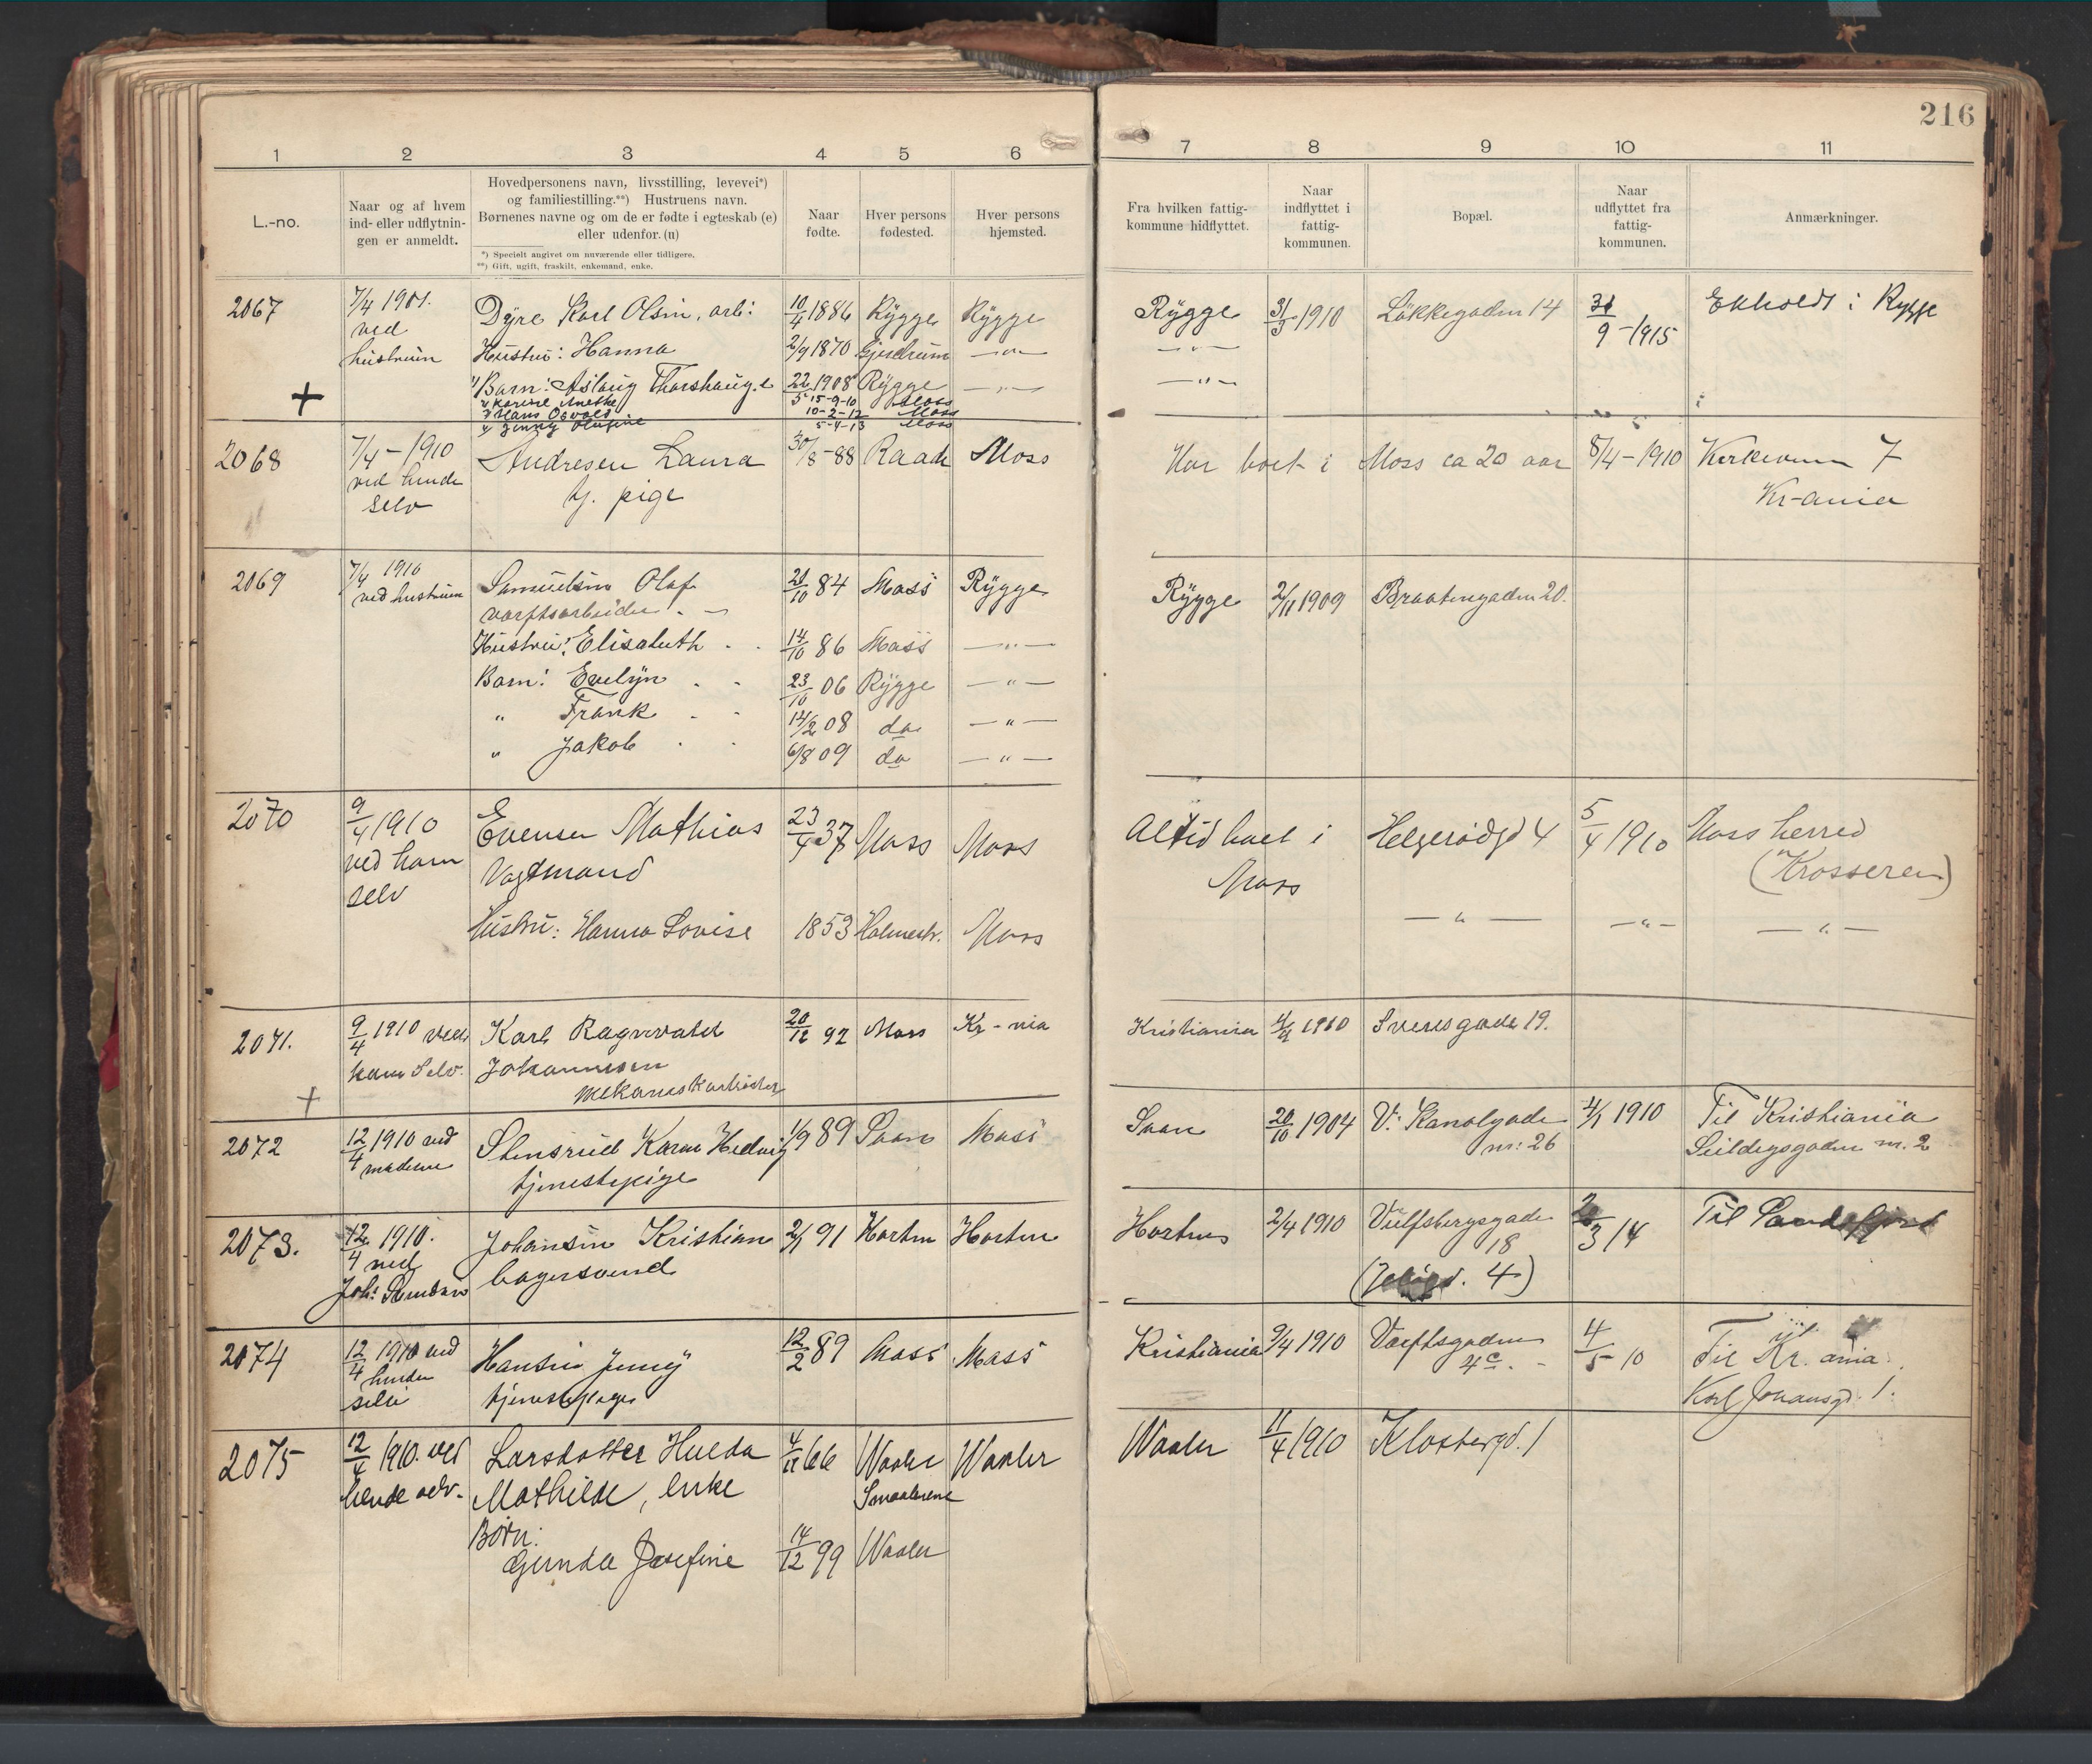 216
1 2 3 4 5 6 7 8 9 10 11
L.-no.
Naar og af hvem
ind- eller udflytnin-
gen er anmeldt.
Hovedpersonens navn, livsstilling, levevei*)
og familiestilling.**) Hustruens navn.
Børnenes navne og om de er fødte i egteskab (e)
eller udenfor. (u)
*) Specielt angivet om nuværende eller tidligere.
**) Gift, ugift, fraskilt, enkemand, enke.
Naar
fødte.
Hver persons
fødested.
Hver persons
hjemsted.
Fra hvilken fattig-
kommune hidflyttet.
Naar
indflyttet i
fattig-
kommunen.
Bopæl.
Naar
udflyttet fra
fattig-
kommunen.
Anmærkninger.
2067 7/4 Dyre Karl Olsen, arb: 10/4 1886 Rygge Rygge Rygge 31/3 1910 Løkkegaden 14 31/9-1915 Ekholdt i Rygge
ved
hustruen Hustru: Hanna 2/9 1870 Gjerdrum —"— —"—
+ 1) Barn: Aslaug Thorshaug. e 22/5 1908 Rygge —"— —"—
2) Karine Anethe 15-9-10 Moss
3) Hans Osvald 10-2-12 Moss
4) Jenny Olufine 5-4-13 Moss
2068 7/4-1910 Andresen Laura 30/8-88 Raade Moss Har boet i Moss ca 20 aar 8/4-1910 Kirkeveien 7
ved hende
selv tj. pige Kr-ania
2069 7/4 1910 Samuelsen Olaf 84 Moss Rygge Rygge 2/11 1909 Braatengaden 20.
ved hustruen
værftsarbeider
Hustru: Elisabeth 14/10 86 Moss —"—
Barn: Evelyn 23/10 06 Rygge —"—
" Frank 14/2 08 do —"—
" Jakob 6/8 09 do —"—
2070 9/4 1910 Evensen Mathias 23/4 37 Moss Moss Altid boet i Helgerødgd 4 5/4 1910 Moss herred
ved ham Vagtmand Moss (Krosseren)
selv
Hustru: Hanna Lovise 1853 Holmestr. Moss —"— —"— —"—
2071. 9/4 1910 ved Karl Ragnvald 20/12 92 Moss Kr-nia Kristiania 4/4 1910 Sveresgade 19.
ham selv. Johannesen
+ mekanisk arbeider
2072 12/4 1910 ved Stensrud Karen Hedvig 1/9 89 Saan Moss Saan 20/10 1904 V: Kanalgade 1910 Til Kristiania
moderen tjenestepige nr: 26 nr. 2
2073. 12/4 1910. Johansen Kristian 2/1 91 Horten Horten Horten 2/4 1910 Vulfsbergsgade 3/14 Til Sandefjord
ved bagersvend 18
Joh: ( 4)
2074 12/4 1910 ved Hansen Jenny 12/2 89 Moss Moss Kristiania 9/4 1910 Værftsgaden 4/5-10 Til Kr. ania.
hende 4c.
selv tjenestepige Karl Johansgd. 1.
2075 12/4 1910. ved Larsdatter Hulda 4/11 66 Waaler Waaler Waaler 11/4 1910 Klostergd. 1
hende selv. Mathilde, enke Smaalenene
Børn:
Gunda Josefine 14/12 99 Waaler